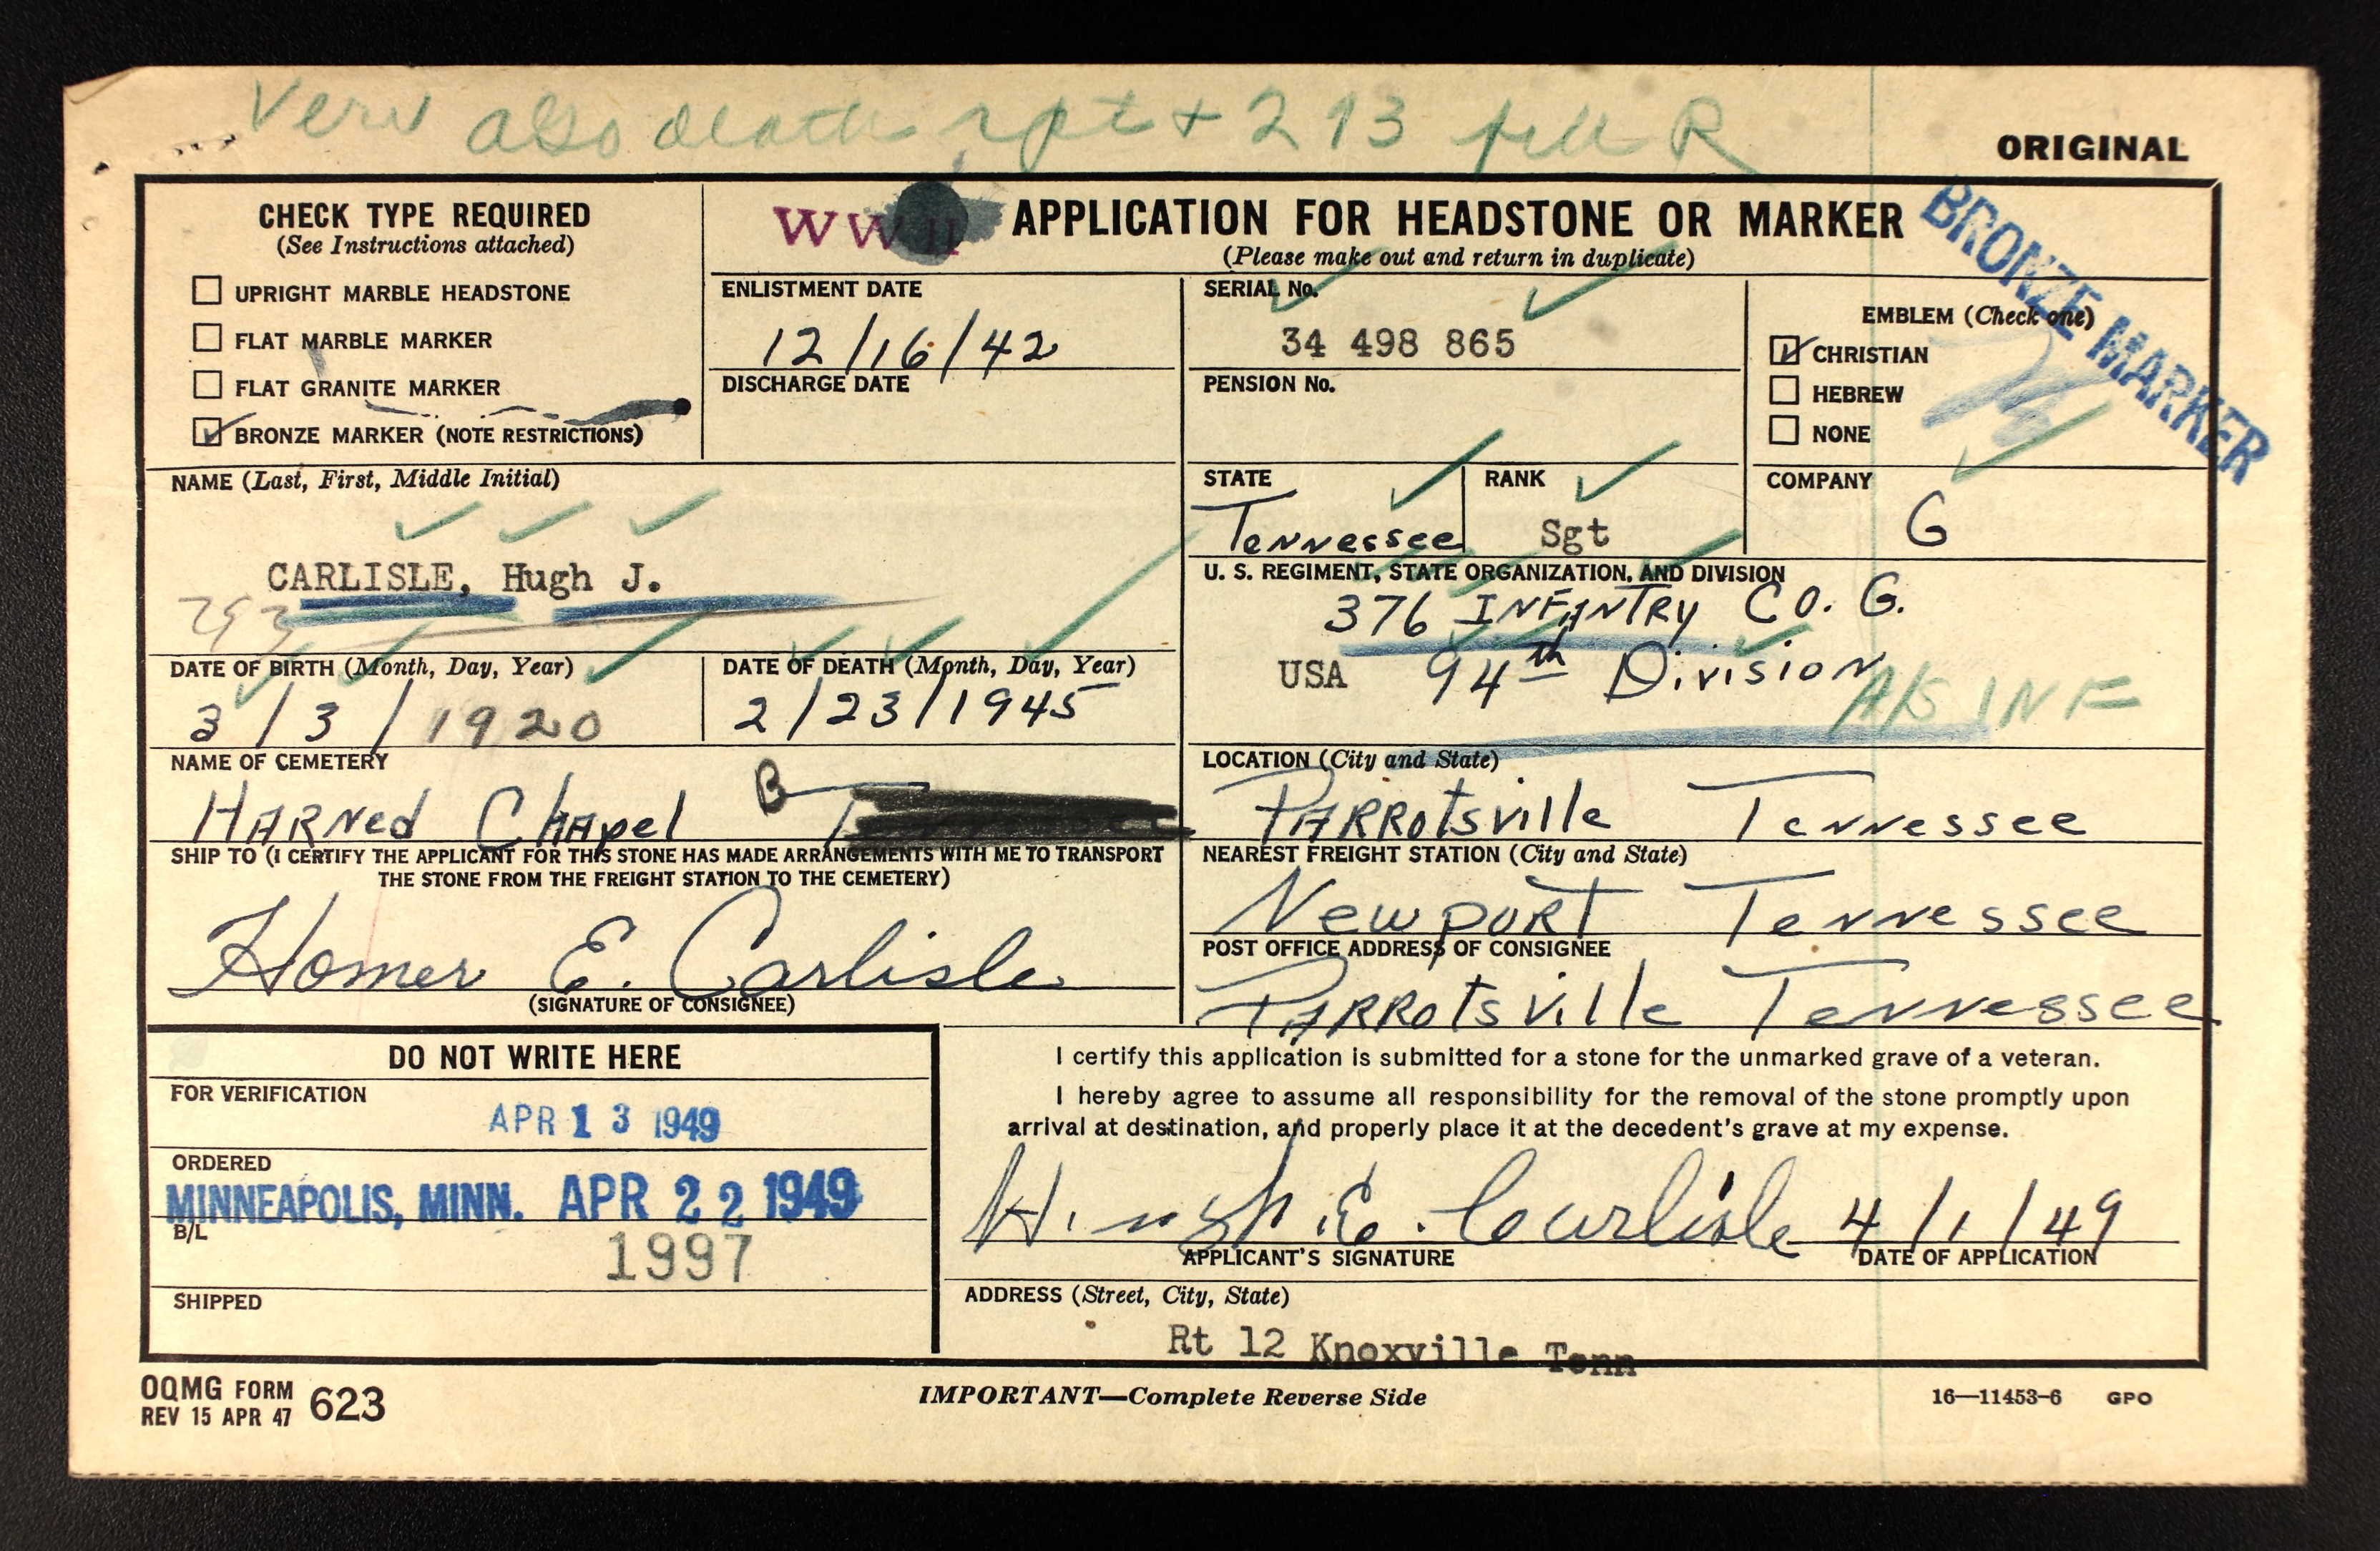 Veri also death rpt + 213 R
ORIGINAL
CHECK TYPE REQUIRED
(See Instructions attached)
UPRIGHT MARBLE HEADSTONE
FLAT MARBLE MARKER
FLAT GRANITE MARKER
BRONZE MARKER (NOTE RESTRICTIONS)
WW II
APPLICATION FOR HEADSTONE OR MARKER
(Please make out and return in duplicate)
BRONZE MARKER
ENLISTMENT DATE
12/16/42
DISCHARGE DATE
SERIAL No.
34 498 865
PENSION No.
EMBLEM (Check one)
CHRISTIAN
HEBREW
NONE
NAME (Last, First, Middle Initial)
CARLISLE, Hugh J.
293
STATE
Tennessee
RANK
Sgt
COMPANY
G
U. S. REGIMENT, STATE ORGANIZATION, AND DIVISION
376 INFANTRY CO. G.
USA 94th Division
A/S INF
DATE OF BIRTH (Month, Day, Year)
3/3/1920
DATE OF DEATH (Month, Day, Year)
2/23/1945
NAME OF CEMETERY
HARNed CHApel B
LOCATION (City and State)
PARROtsville Tennessee
SHIP TO (I CERTIFY THE APPLICANT FOR THIS STONE HAS MADE ARRANGEMENTS WITH ME TO TRANSPORT
THE STONE FROM THE FREIGHT STATION TO THE CEMETERY)
Homer E. Carlisle
(SIGNATURE OF CONSIGNEE)
NEAREST FREIGHT STATION (City and State)
Newport Tennessee
POST OFFICE ADDRESS OF CONSIGNEE
PARROtsville Tennessee
DO NOT WRITE HERE
FOR VERIFICATION
APR 13 1949
ORDERED
MINNEAPOLIS, MINN. APR 22 1949
B/L
1997
SHIPPED
I certify this application is submitted for a stone for the unmarked grave of a veteran.
I hereby agree to assume all responsibility for the removal of the stone promptly upon
arrival at destination, and properly place it at the decedent's grave at my expense.
Hugh E. Carlisle 4/1/49
APPLICANT'S SIGNATURE
DATE OF APPLICATION
ADDRESS (Street, City, State)
Rt 12 Knoxville Tenn
OQMG FORM 623
REV 15 APR 47
IMPORTANT—Complete Reverse Side
16—11453-6 GPO